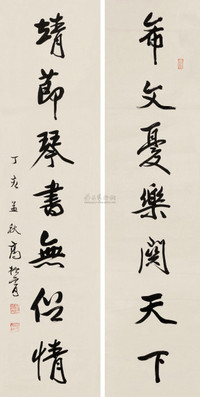 希文憂樂關天下
靖節琴書無俗情
丁亥孟秋高振霄